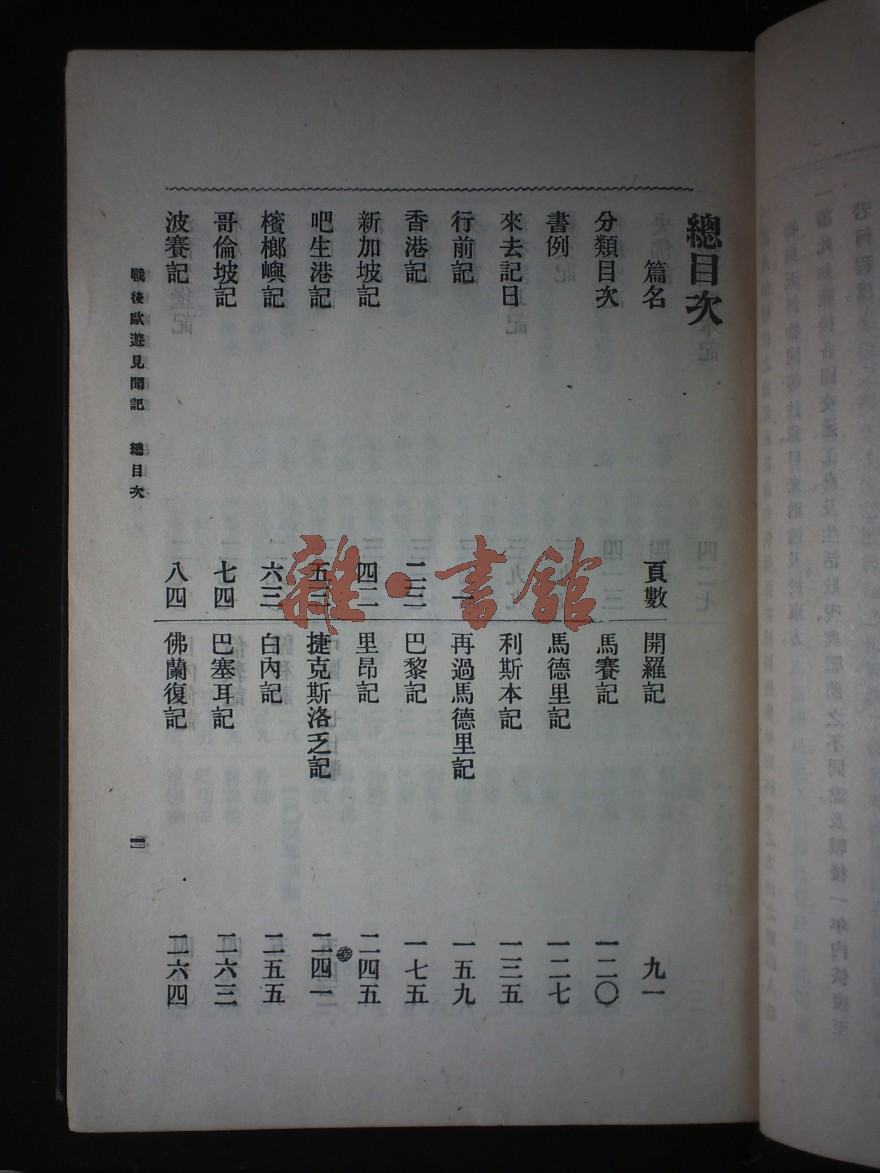 總目次
篇名 頁數
分類目次
書例
來去記日
行前記 一
香港記 二三
新加坡記 四二
吧生港記
檳榔嶼記 六三
哥倫坡記 七四
波賽記 八四
開羅記 九一
馬賽記 一二〇
馬德里記 一二七
利斯本記 一三五
再過馬德里記 一五九
巴黎記 一七五
里昂記 二四五
捷克斯洛乏記 二四一
白內記 二五五
巴塞耳記 二六三
佛蘭復記 二六四
戰後歐遊見聞記 總目次
雜·書館